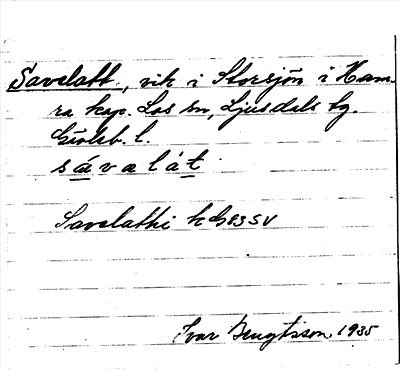 Savelatt, vik i Storsjön i Ham-
ra kap. Los sn, Ljusdals tg.
Gävleb. l.
sávalát
Savelatti k G83SV
Ivar Bengtsson 1935